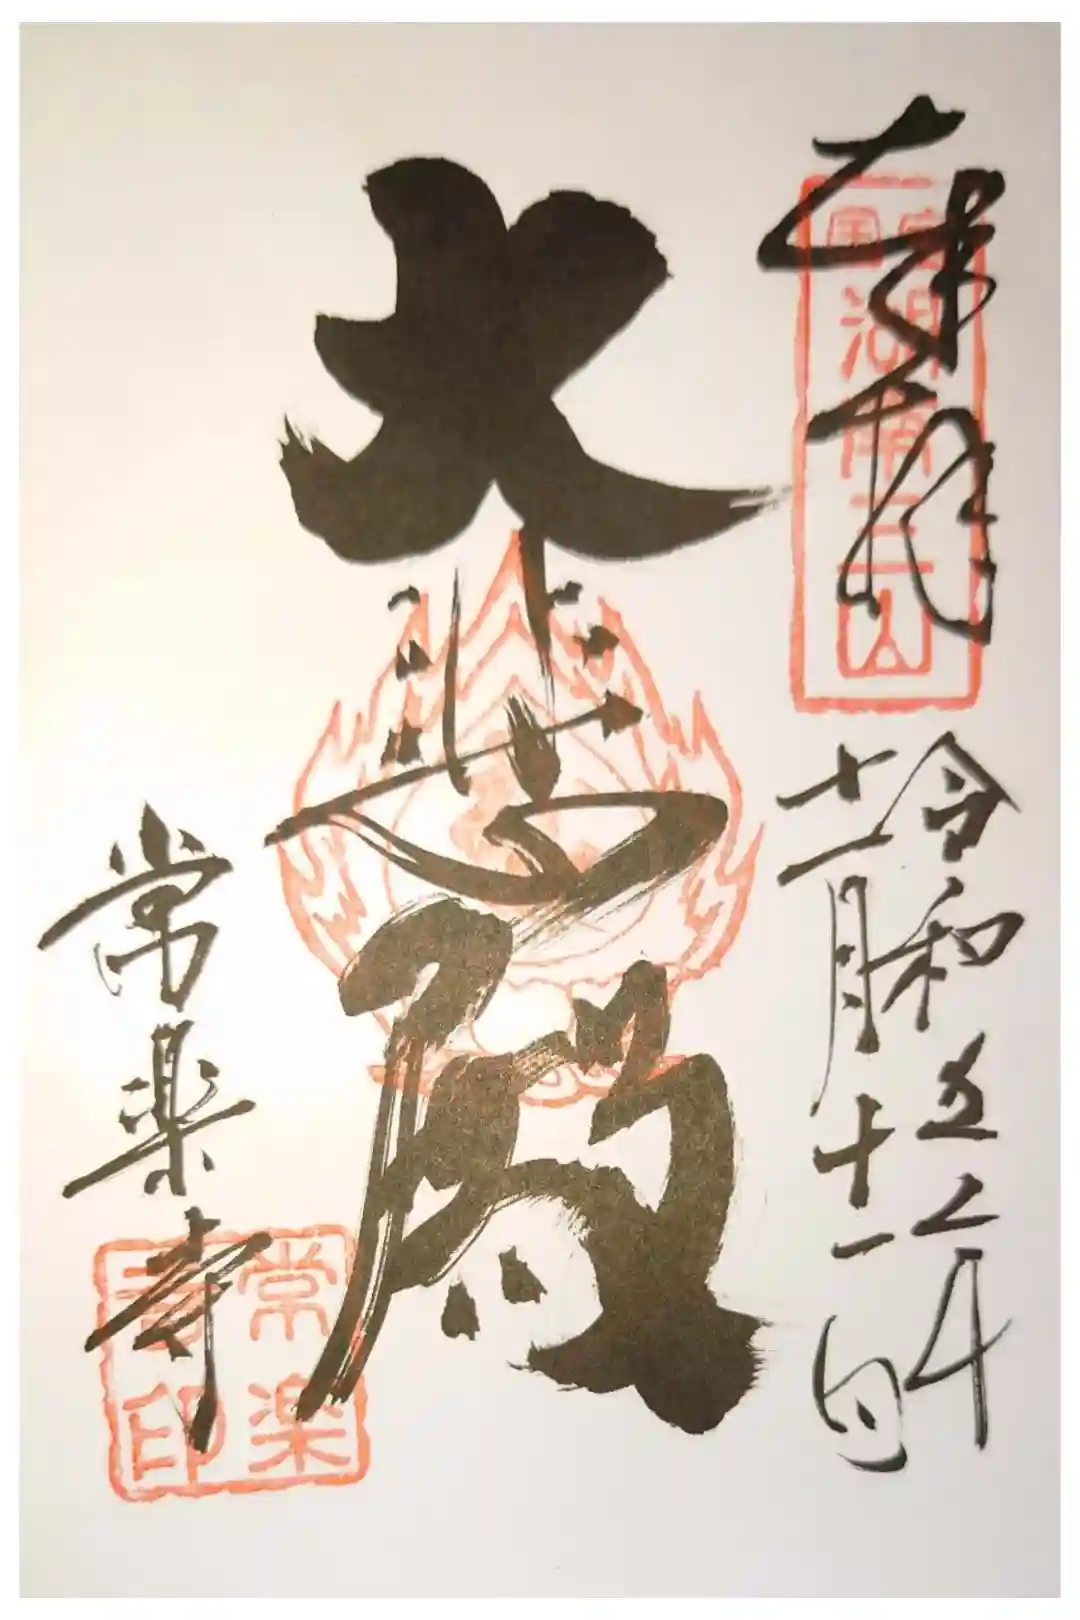 奉拝
国宝
湖南三山
令和五年
十一月十一日
大悲閣
常楽寺
常楽
寺印